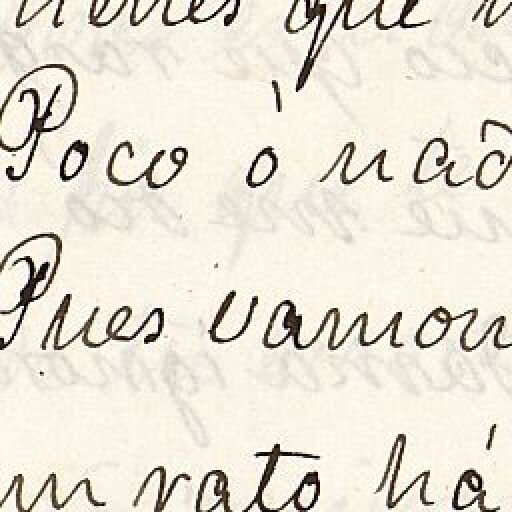 que
Poco ó nad
Pues vamon
un rato há